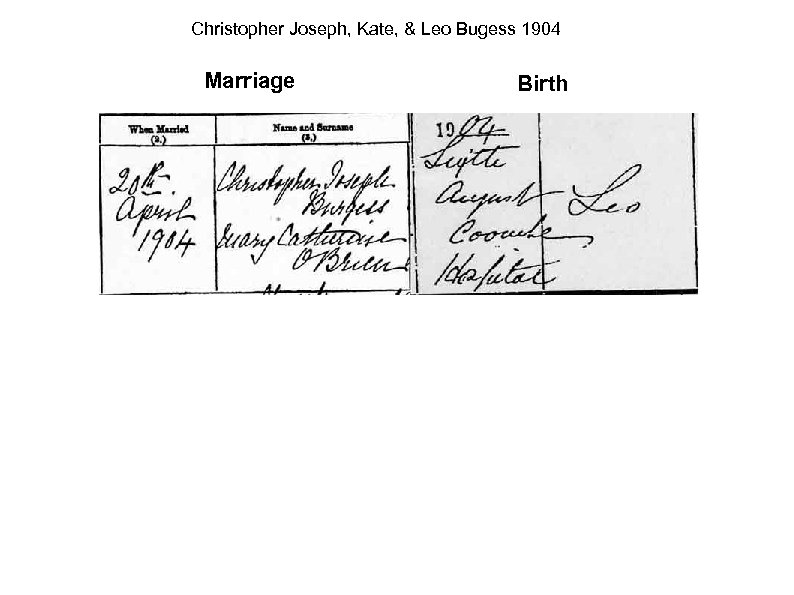 Christopher Joseph, Kate, & Leo Bugess 1904
Marriage
Birth
When Married
(2.)
Name and Surname
(3.)
20th.
April
1904
Christopher Joseph
Burgess
Mary Catherine
O'Brien
1904
August
Coombe
Hospital
Leo